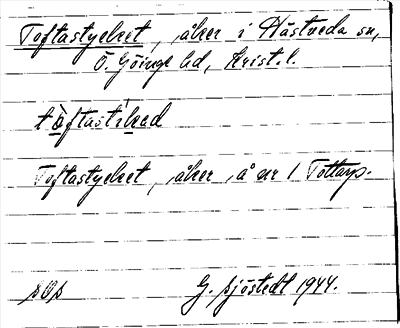 Toftastycket, åker i Hästveda sn,
Ö. Göinge hd, Krist. l.
Toftastycket, åker, å nr 1 Tottarp.
G. Sjöstedt 1944.